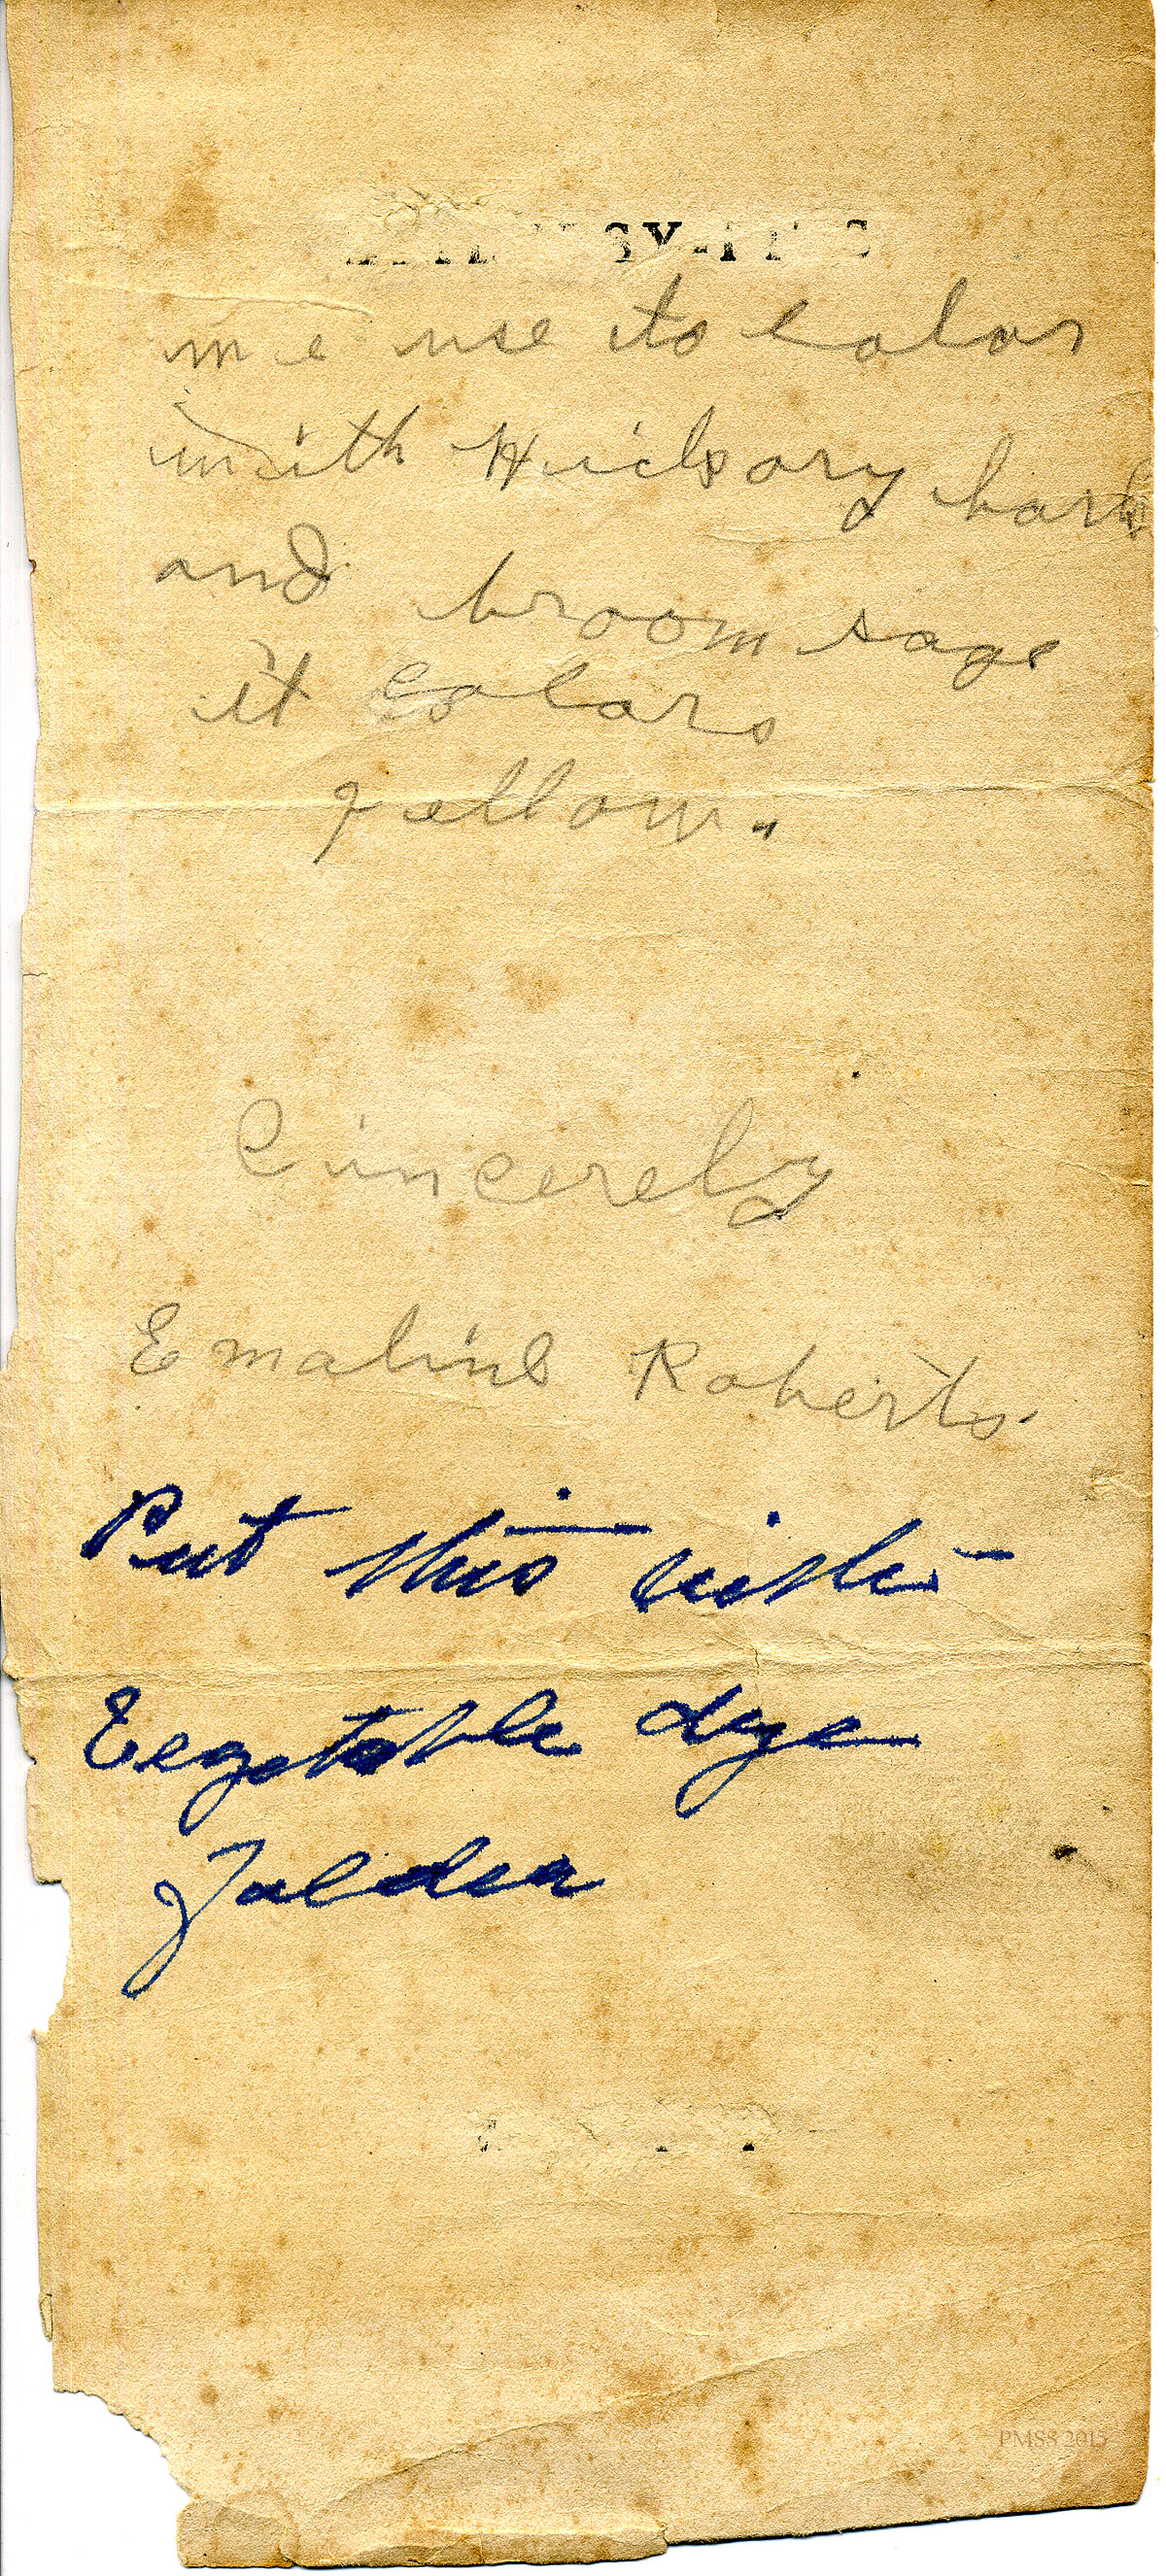 we use to Color
with Hickory bark
and broom sage
it Colors
yellow.
Cincerely
Emaline Roberts
Put this with
Vegetable dye
Folder
PMSS 2015